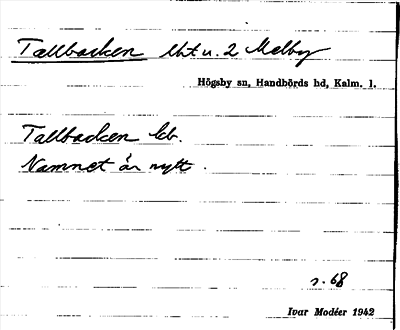 Tallbacken lht u. 2 Melby
Högsby sn, Handbörds hd, Kalm. l.
Tallbacken lcb.
Namnet är nytt.
s. 68
Ivar Modéer 1942